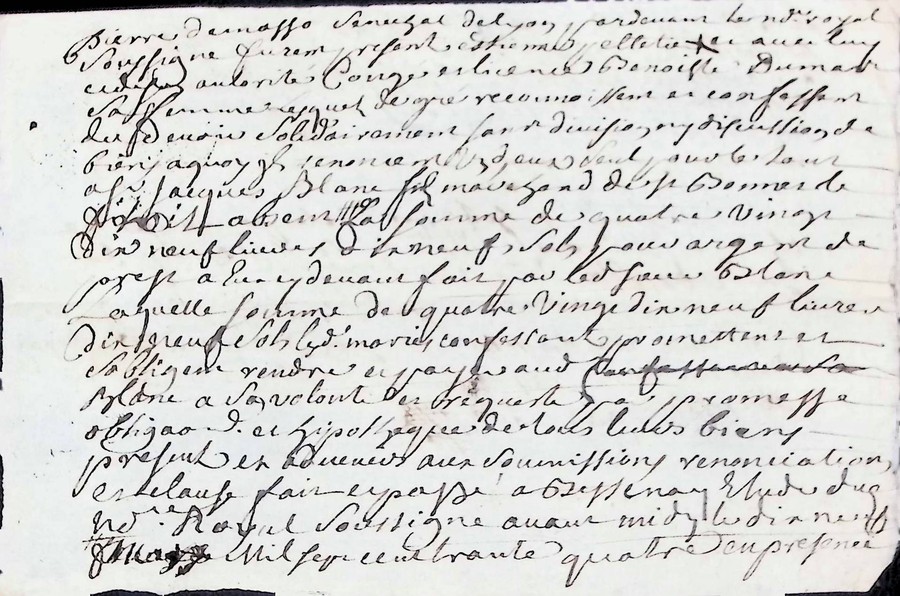 pierre demasso Senechal delyon pardevant le nore royal
soussigne furent present estienne pelletier et avec luy
authorite Conge et licence Benoiste Dumas
sa femme lequel de gre reconnoissent et confessent
devoir solidairement sans division ny discussion de
biens a quoy ils renoncent d'eux seul pour le tout
a sr Jacques Blanc fils marchand de st Bonnet le
froit absent la somme de quatre vingt
dix neuf livres dix neuf sols pour argent de
prest a eux cy devant fait par led sieur Blanc
Laquelle somme de quatre vingt dix neuf livres
dix neuf sols led. maries confessant promettent et
s'obligent rendre et payer aud
Blanc a sa volonte et requeste par promesse
obligaon. et hipotheque de tous leurs biens
present et advenir aux soumissions renonciations
et clause fait et passé a Bessenay Etude dud
nore. Royal soussigne avant midy le dix neuf
may Mil sept cent trante quatre en presence